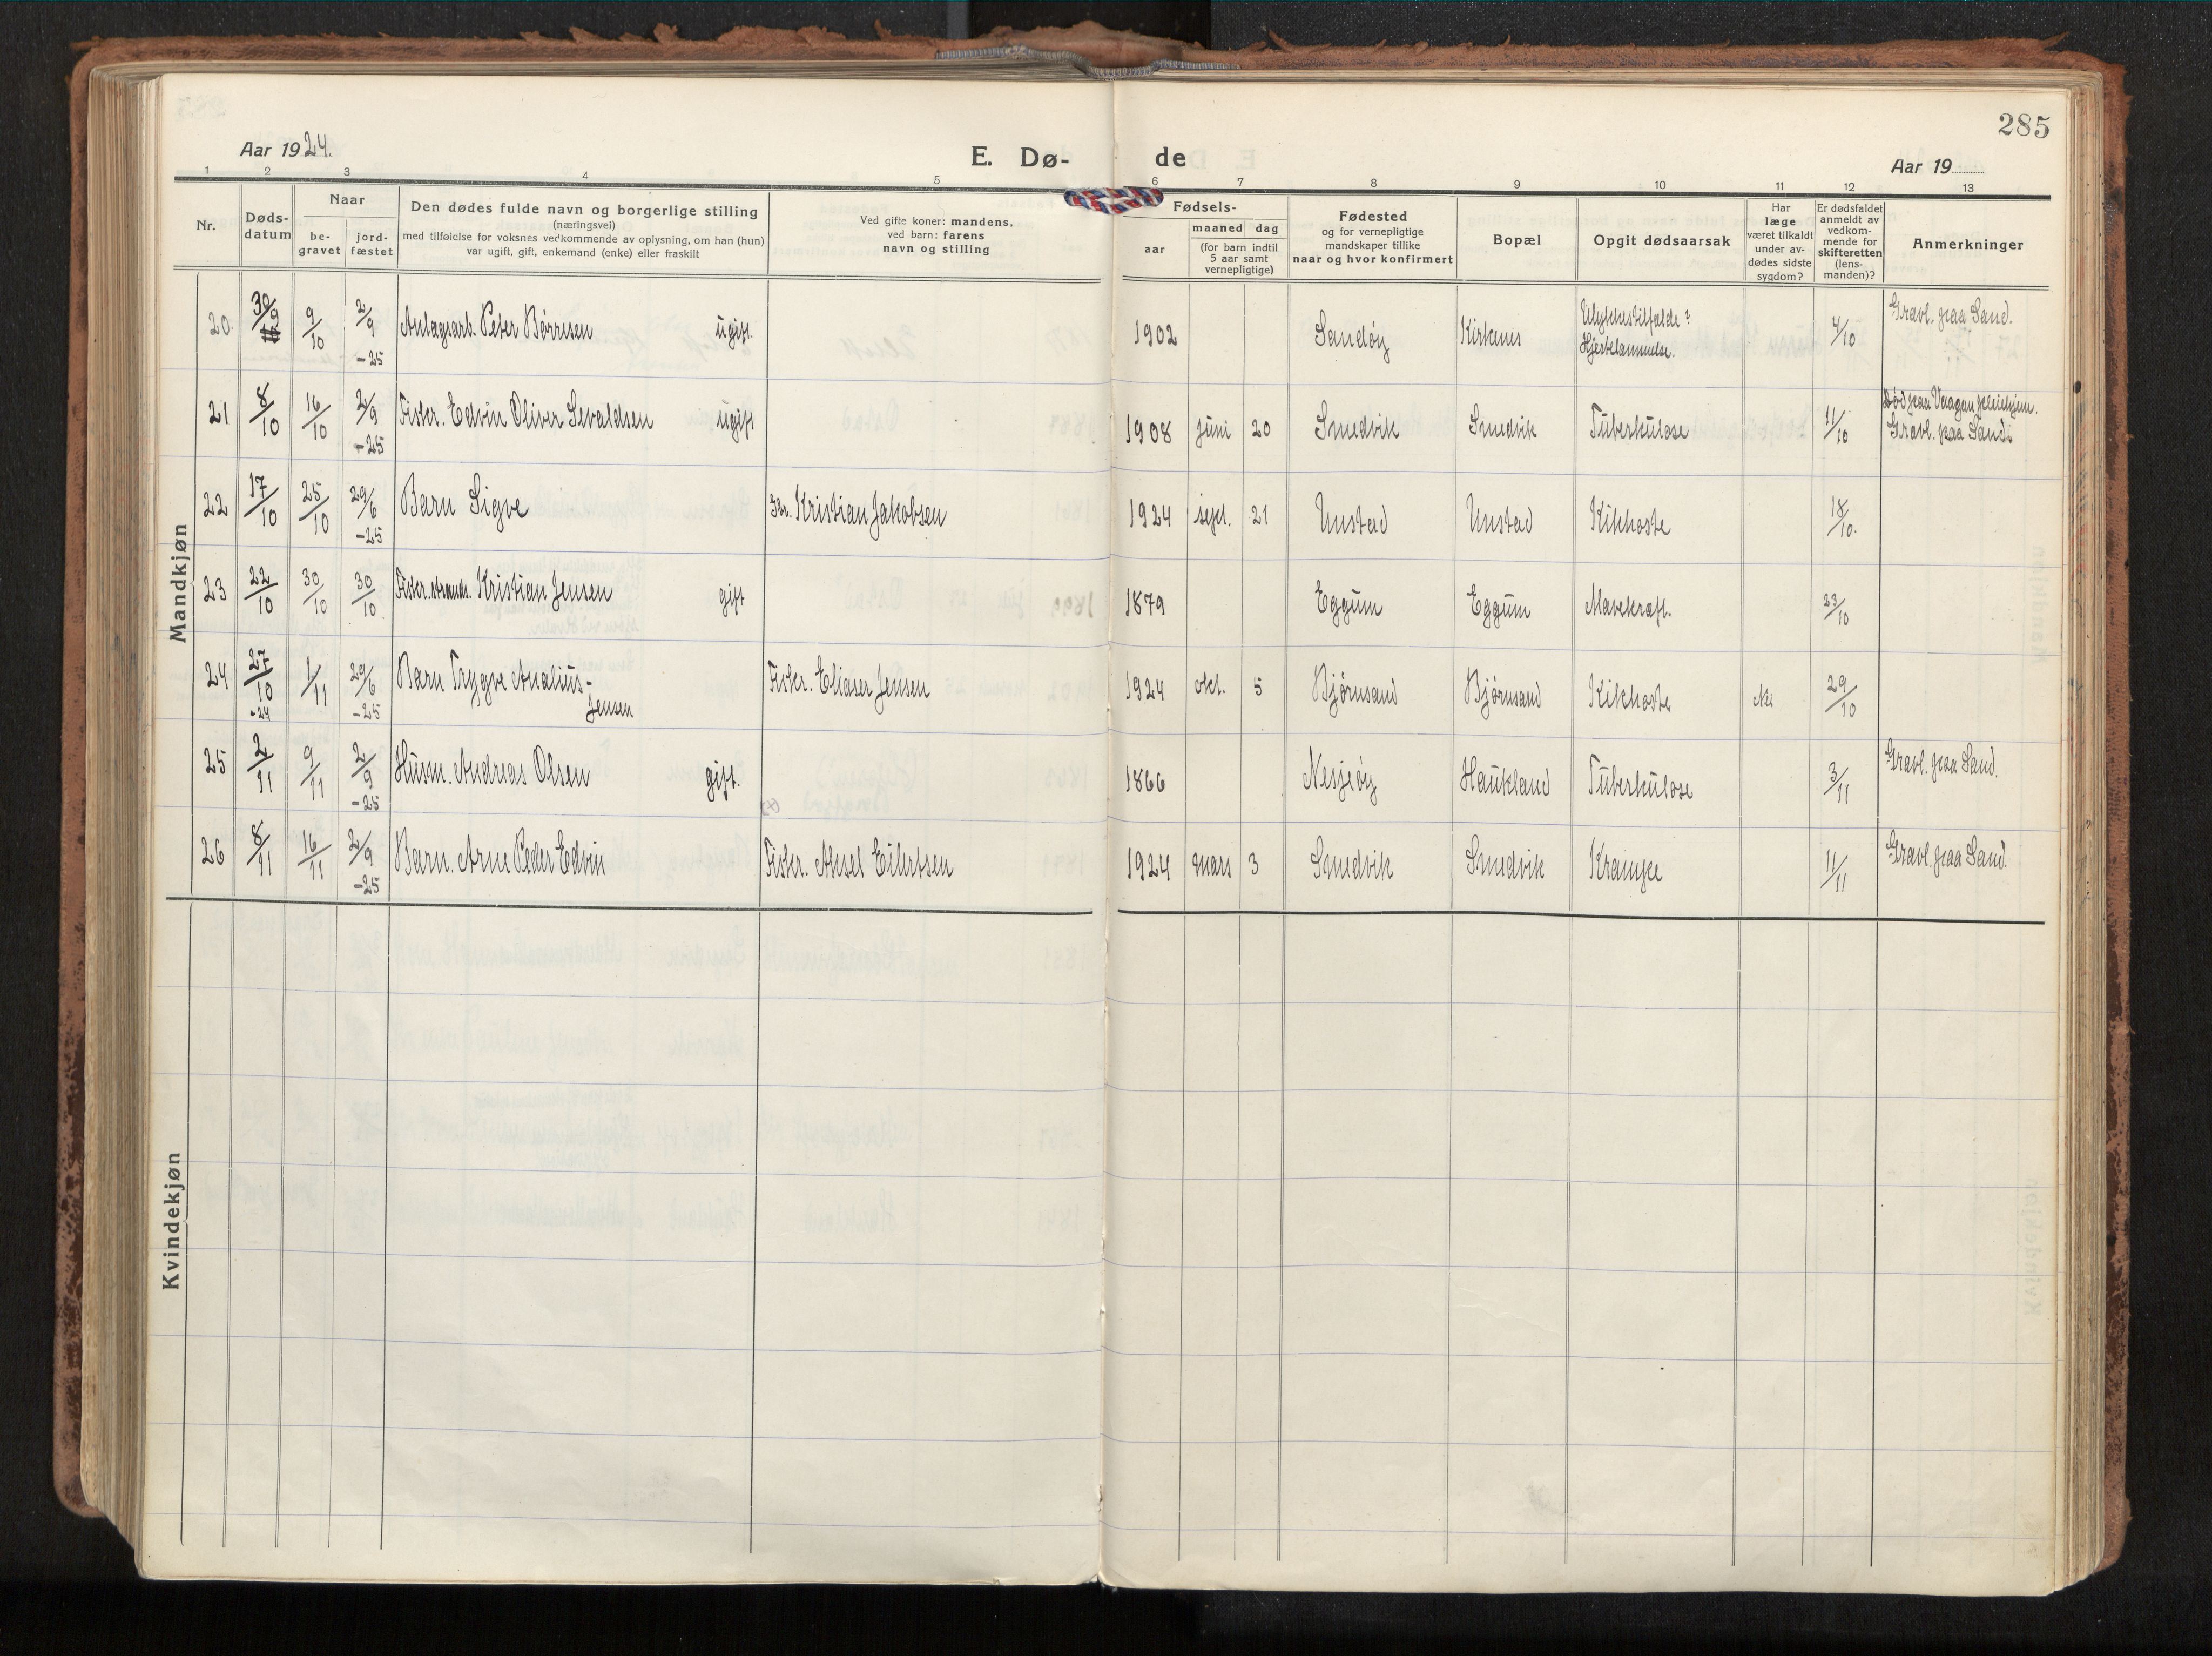 285
Aar 1924.
E. Dø- de
Aar 19
1 2 3 4 5 6 7 8 9 10 11 12 13
Nr.
Døds-
datum
Naar
be-
gravet
jord-
fæstet
Den dødes fulde navn og borgerlige stilling
(næringsvei)
med tilføielse for voksnes vedkommende av oplysning, om han (hun)
var ugift, gift, enkemand (enke) eller fraskilt
Ved gifte koner: mandens,
ved barn: farens
navn og stilling
Fødsels-
aar
maaned dag
(for barn indtil
5 aar samt
vernepligtige)
Fødested
og for vernepligtige
mandskaper tillike
naar og hvor konfirmert
Bopæl
Opgit dødsaarsak
Har
læge
været tilkaldt
under av-
dødes sidste
sygdom?
Er dødsfaldet
anmeldt av
vedkom-
mende for
skifteretten
(lens-
manden)?
Anmerkninger
Mandkjøn
20. 30/9 9/10 2/9 -25 Anlagsarb. Peter Børresen ugift. 1902 Sandøy Kirkenes Ulykkestilfælde? Hjertelammelse. 4/10 Gravl. paa Sand.
21 8/10 16/10 2/9 -25 Fisker. Edvin Oliver Sevaldsen ugift 1908 juni 20 Smedvik Smedvik Tuberkulose 11/10 Død paa Vaagan pleiehjem. Gravl. paa Sand.
22 17/10 25/10 29/6 -25 Barn Sigve Fskr. Kristian Jakobsen 1924 sept. 21 Unstad Unstad Kikhoste 18/10.
23 22/10 30/10 30/10. Fisker. Kristian Jensen gift 1879 Eggum Eggum Mavekræft. 23/10
24 27/10 -24 1/11 29/6 -25 Barn Trygve Analius- Jensen Fiskr. Eliaser Jensen 1924 okt. 5 Bjørnsand Bjørnsand Kikhoste Nei 29/10
25 2/11 9/11 2/9 -25 Husm. Andreas Olsen gift. 1866 Nesjeøy Haukland Tuberkulose 3/11 Gravl. paa Sand.
26 8/11 16/11 2/9 -25 Barn. Arne Peder Edvin Fiskr. Aksel Eilertsen 1924 mars 3 Smedvik Smedvik Krampe 11/11 Gravl. paa Sand.
Kvindekjøn